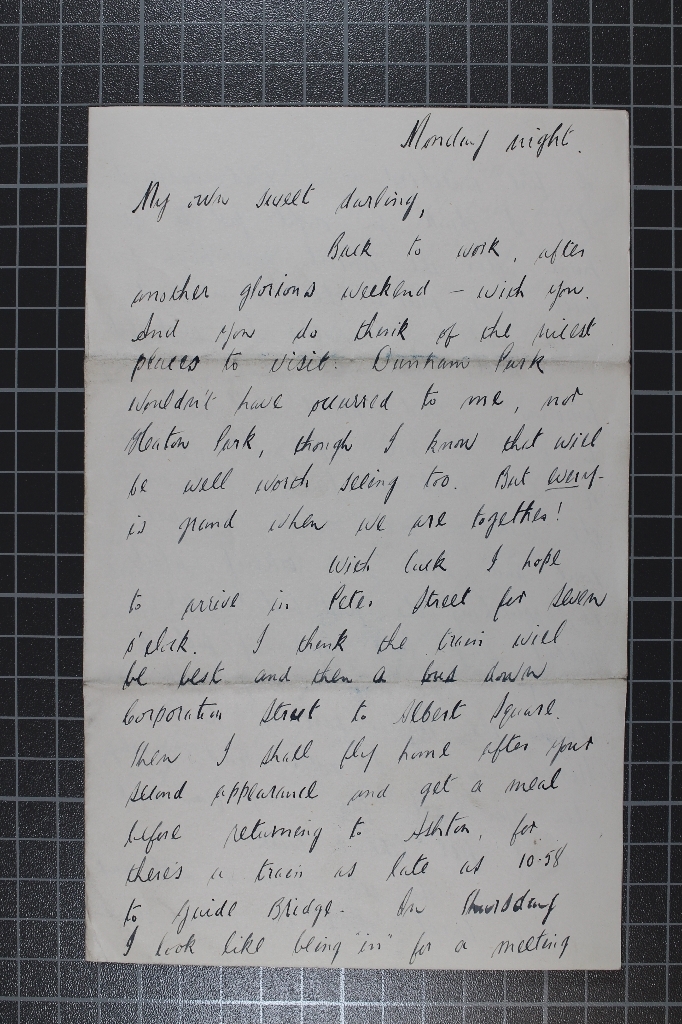 Monday night.
My own sweet darling,
Back to work, after
another glorious weekend – with you.
And you do think of the nicest
places to visit. Dunham Park
wouldn't have occurred to me, nor
Heaton Park, though I know that will
be well worth seeing too. But every-
is grand when we are together!
With luck I hope
to arrive in Peter Street for seven
o'clock. I think the train will
be best and then a bus down
Corporation Street to Albert Square.
Then I shall fly home after your
second appearance and get a meal
before returning to Ashton, for
there's a train as late as 10-58
to Guide Bridge. On Thursday
I look like being "in" for a meeting